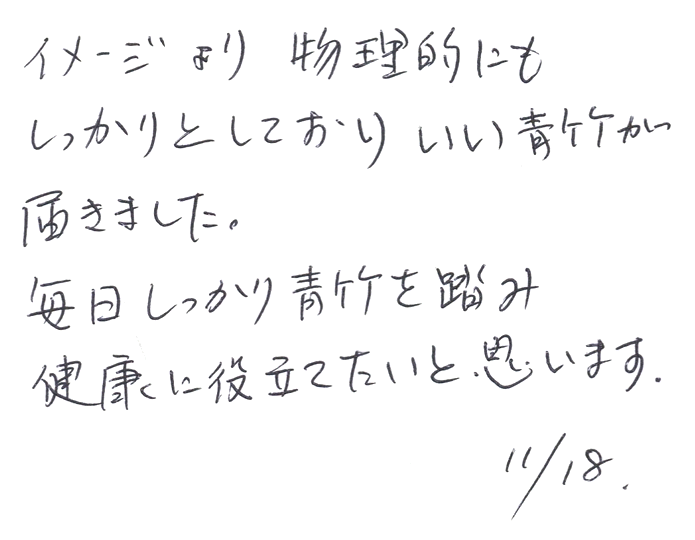 イメージより 物理的にも
しっかりとしており いい青竹が
届きました。
毎日しっかり青竹を踏み
健康に役立てたいと思います.
11/18.